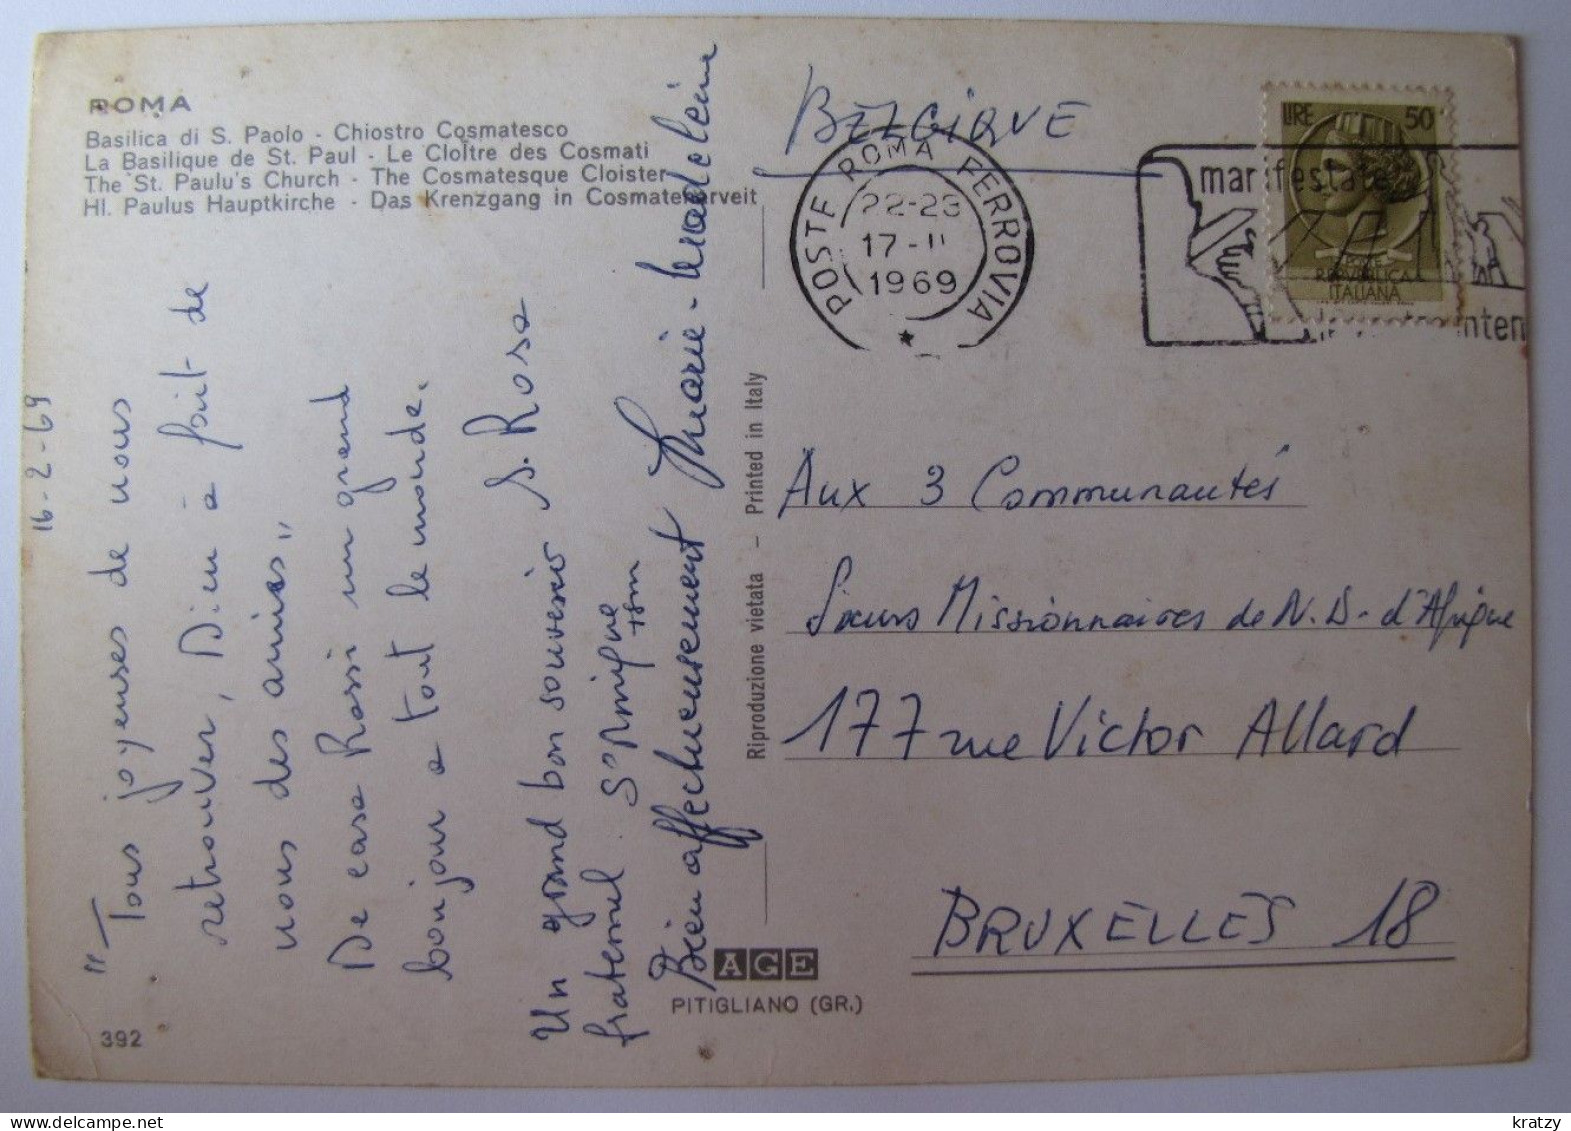 ROMA
Basilica di S. Paolo - Chiostro Cosmatesco
La Basilique de St. Paul - Le Cloître des Cosmati
The St. Paulu's Church - The Cosmatesque Cloister
Hl. Paulus Hauptkirche - Das Krenzgang in Cosmatenerveit
16-2-69
"Tous joyeuses de nous
retrouver, Dieu a fait de
nous des amies"
De casa Rossi un grand
bonjour a tout le monde.
S. Rosa
Un grand bon souvenir
fraternel.
Bien affectueusement Marie-Madeleine
392
Riproduzione vietata - Printed in Italy
AGE
PITIGLIANO (GR.)
BELGIQUE
POSTE ROMA FERROVIA
22-23
17-II
1969
LIRE 50
POSTE
REPVBBLICA
ITALIANA
Aux 3 Communautés
Soeurs Missionnaires de N.D. d'Afrique
177 rue Victor Allard
BRUXELLES 18
kratzy